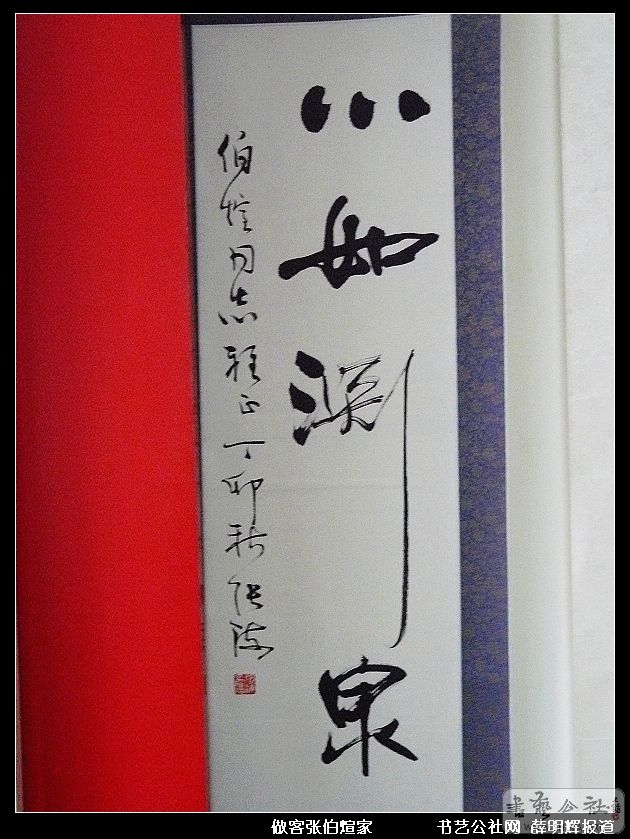 心如渊泉
伯煊同志雅正丁卯秋张海
書藝公社
做客张伯煊家 书艺公社网 薛明辉报道